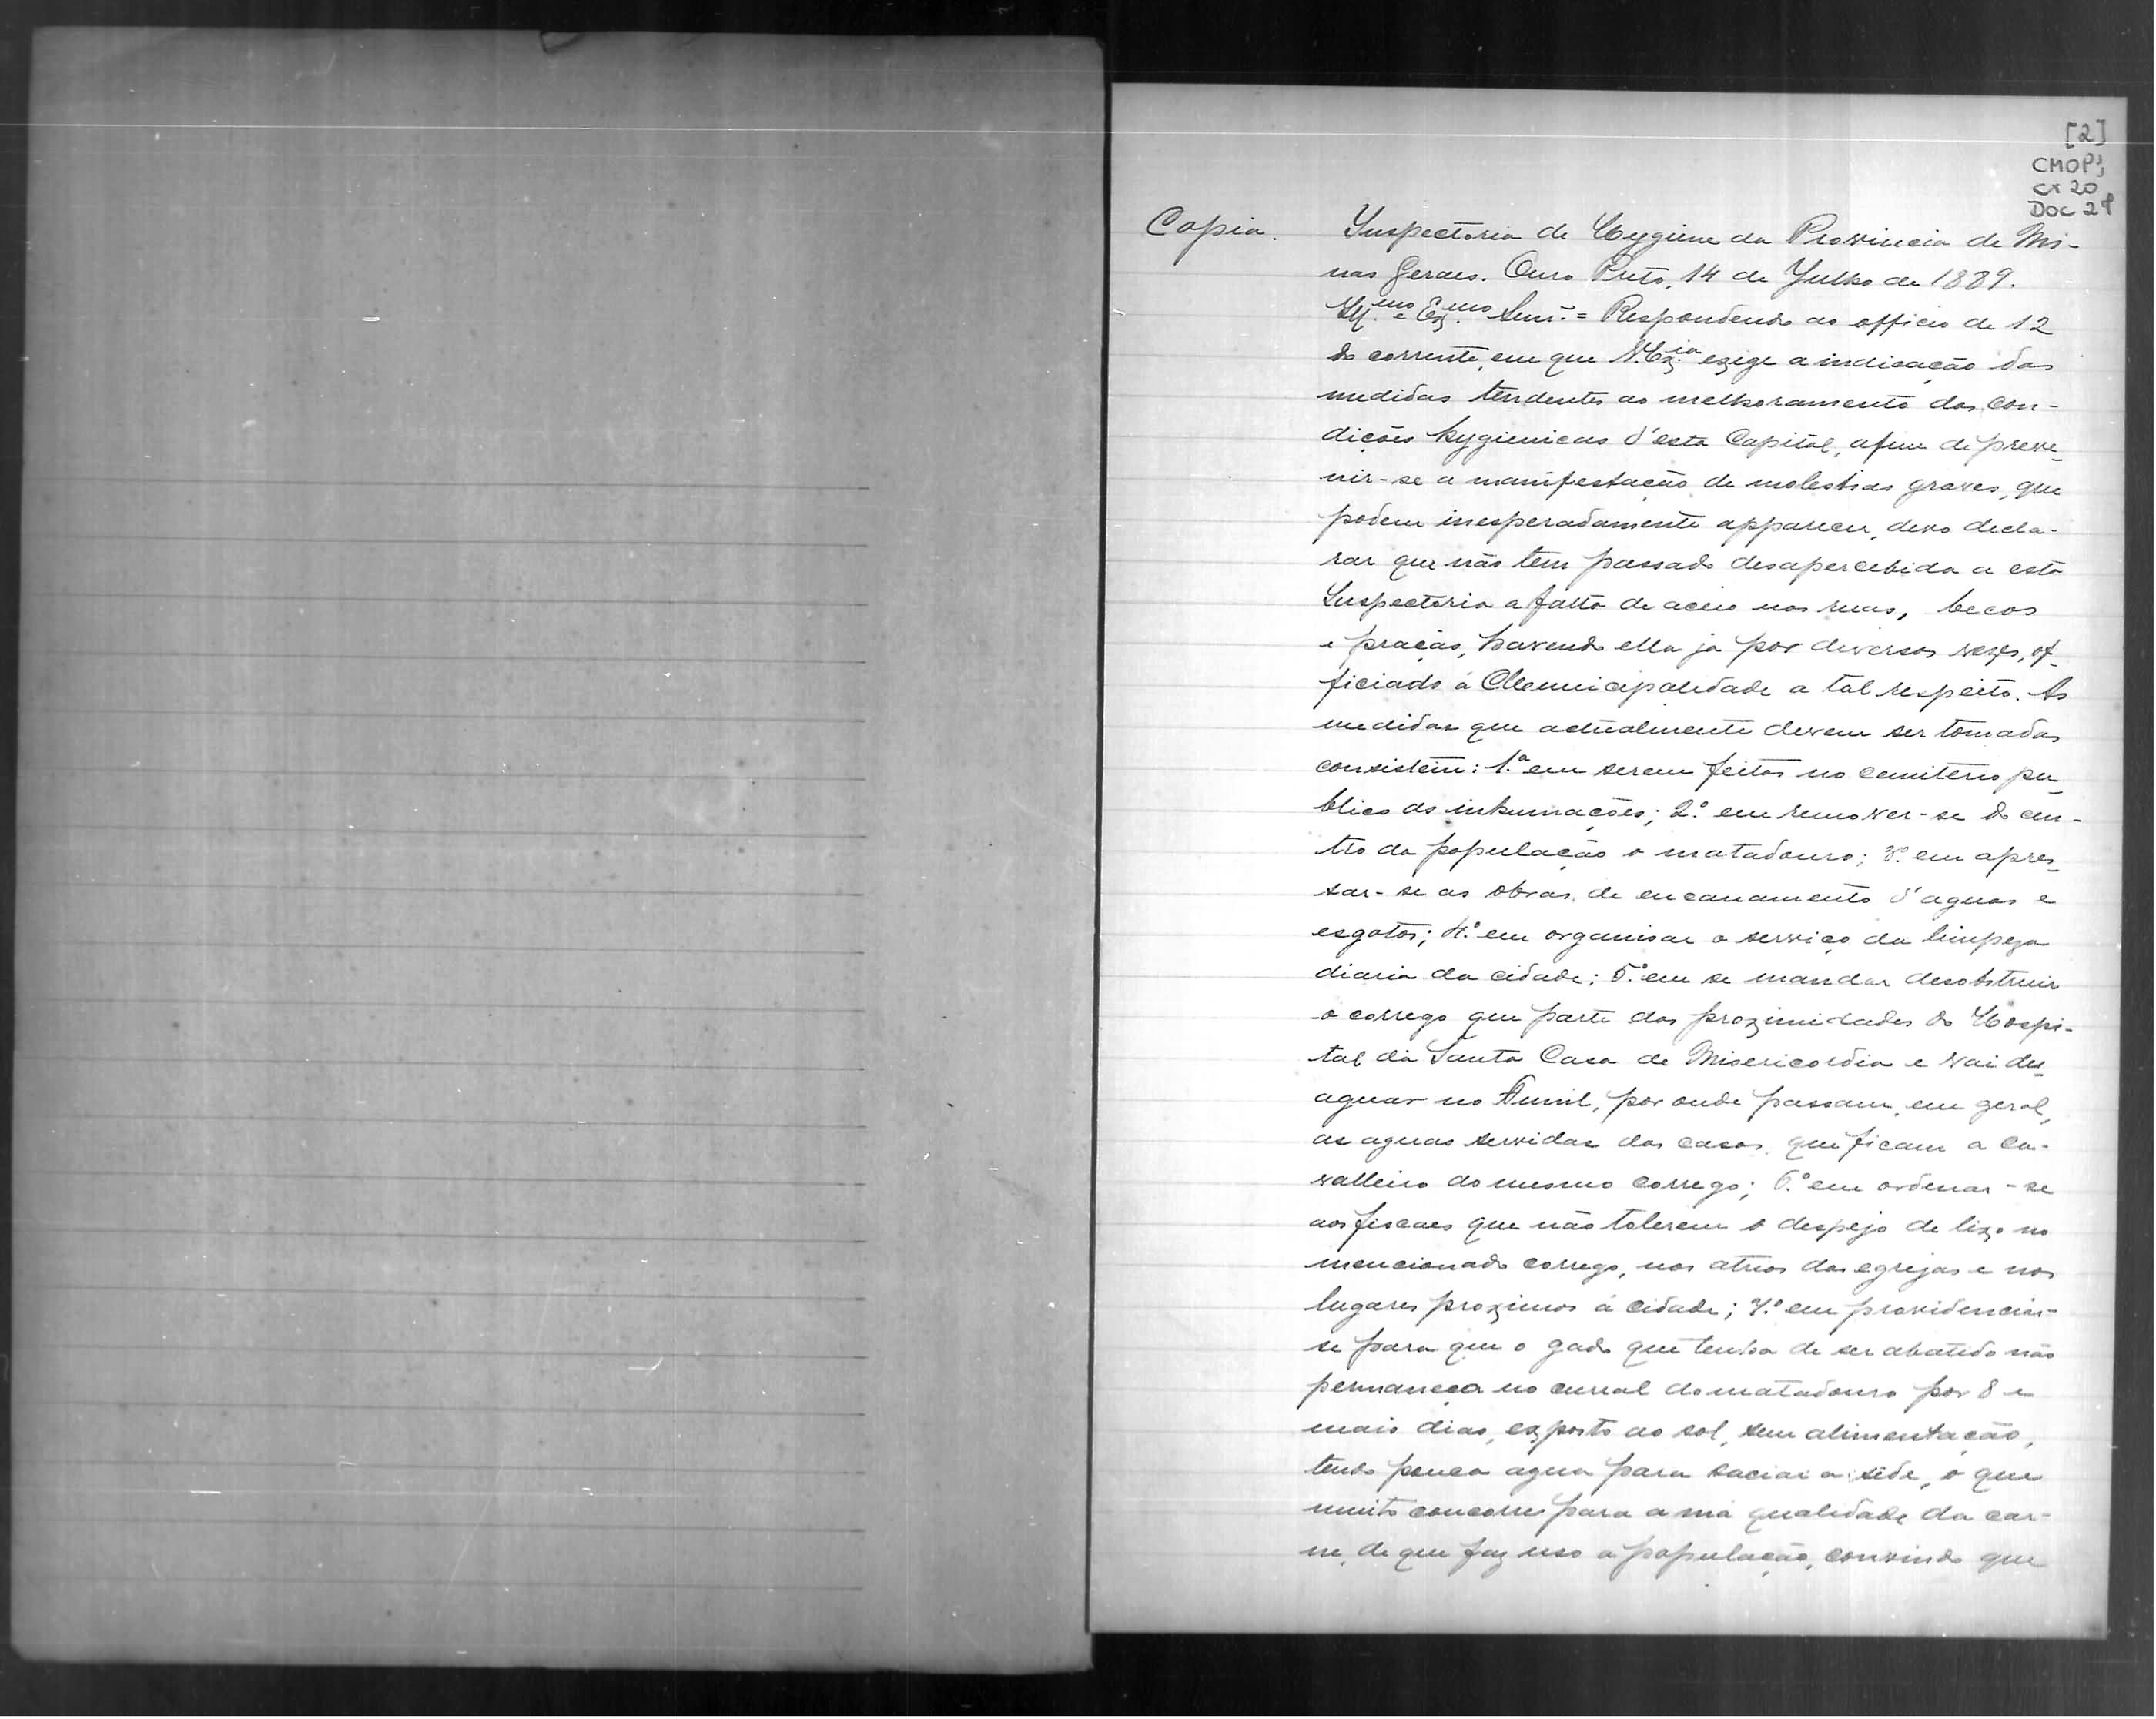 [2]
CMOP;
cx 20
Doc 29
Copia.
Inspectoria de Hygiene da Provincia de Mi-
nas Geraes. Ouro Preto, 14 de Julho de 1889.
Ill.mo e Ex.mo Senr. = Respondendo ao officio de 12
do corrente, em que V. Ex.ia exige a indicação das
medidas tendentes ao melhoramento das con-
dições hygienicas d'esta Capital, afim de preve-
nir-se a manifestação de molestias graves, que
podem inesperadamente apparecer, devo decla-
rar que não tem passado desapercebida a esta
Inspectoria a falta de aceio nas ruas, becos
e praças, havendo ella ja por diversas vezes, of-
ficiado á Municipalidade a tal respeito. As
medidas que actualmente devem ser tomadas
consistem: 1.ª em serem feitas no cemiterio pu-
blico as inhumações; 2.º em remover-se do cen-
tro da população o matadouro; 3.º em apres-
sar-se as obras de encanamento d'aguas e
esgotos; 4.º em organisar o serviço da limpeza
diaria da cidade; 5.º em se mandar desobstruir
o corrego que parte das proximidades do Hospi-
tal da Santa Casa de Misericordia e vai des-
aguar no Funil, por onde passam, em geral,
as aguas servidas das casas, que ficam a ca-
valleiro do mesmo corrego; 6.º em ordenar-se
aos fiscaes que não tolerem o despejo de lixo no
mencionado corrego, nos atrios das egrejas e nos
lugares proximos á cidade; 7.º em providenciar-
se para que o gado que tenha de ser abatido não
permaneça no curral do matadouro por 8 e
mais dias, exposto ao sol, sem alimentação,
tendo pouca agua para saciar a sêde, o que
muito concorre para a má qualidade da car-
ne, de que faz uso a população, convindo que